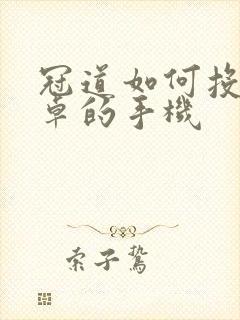 冠道如何投
卓的手機
索子鷙